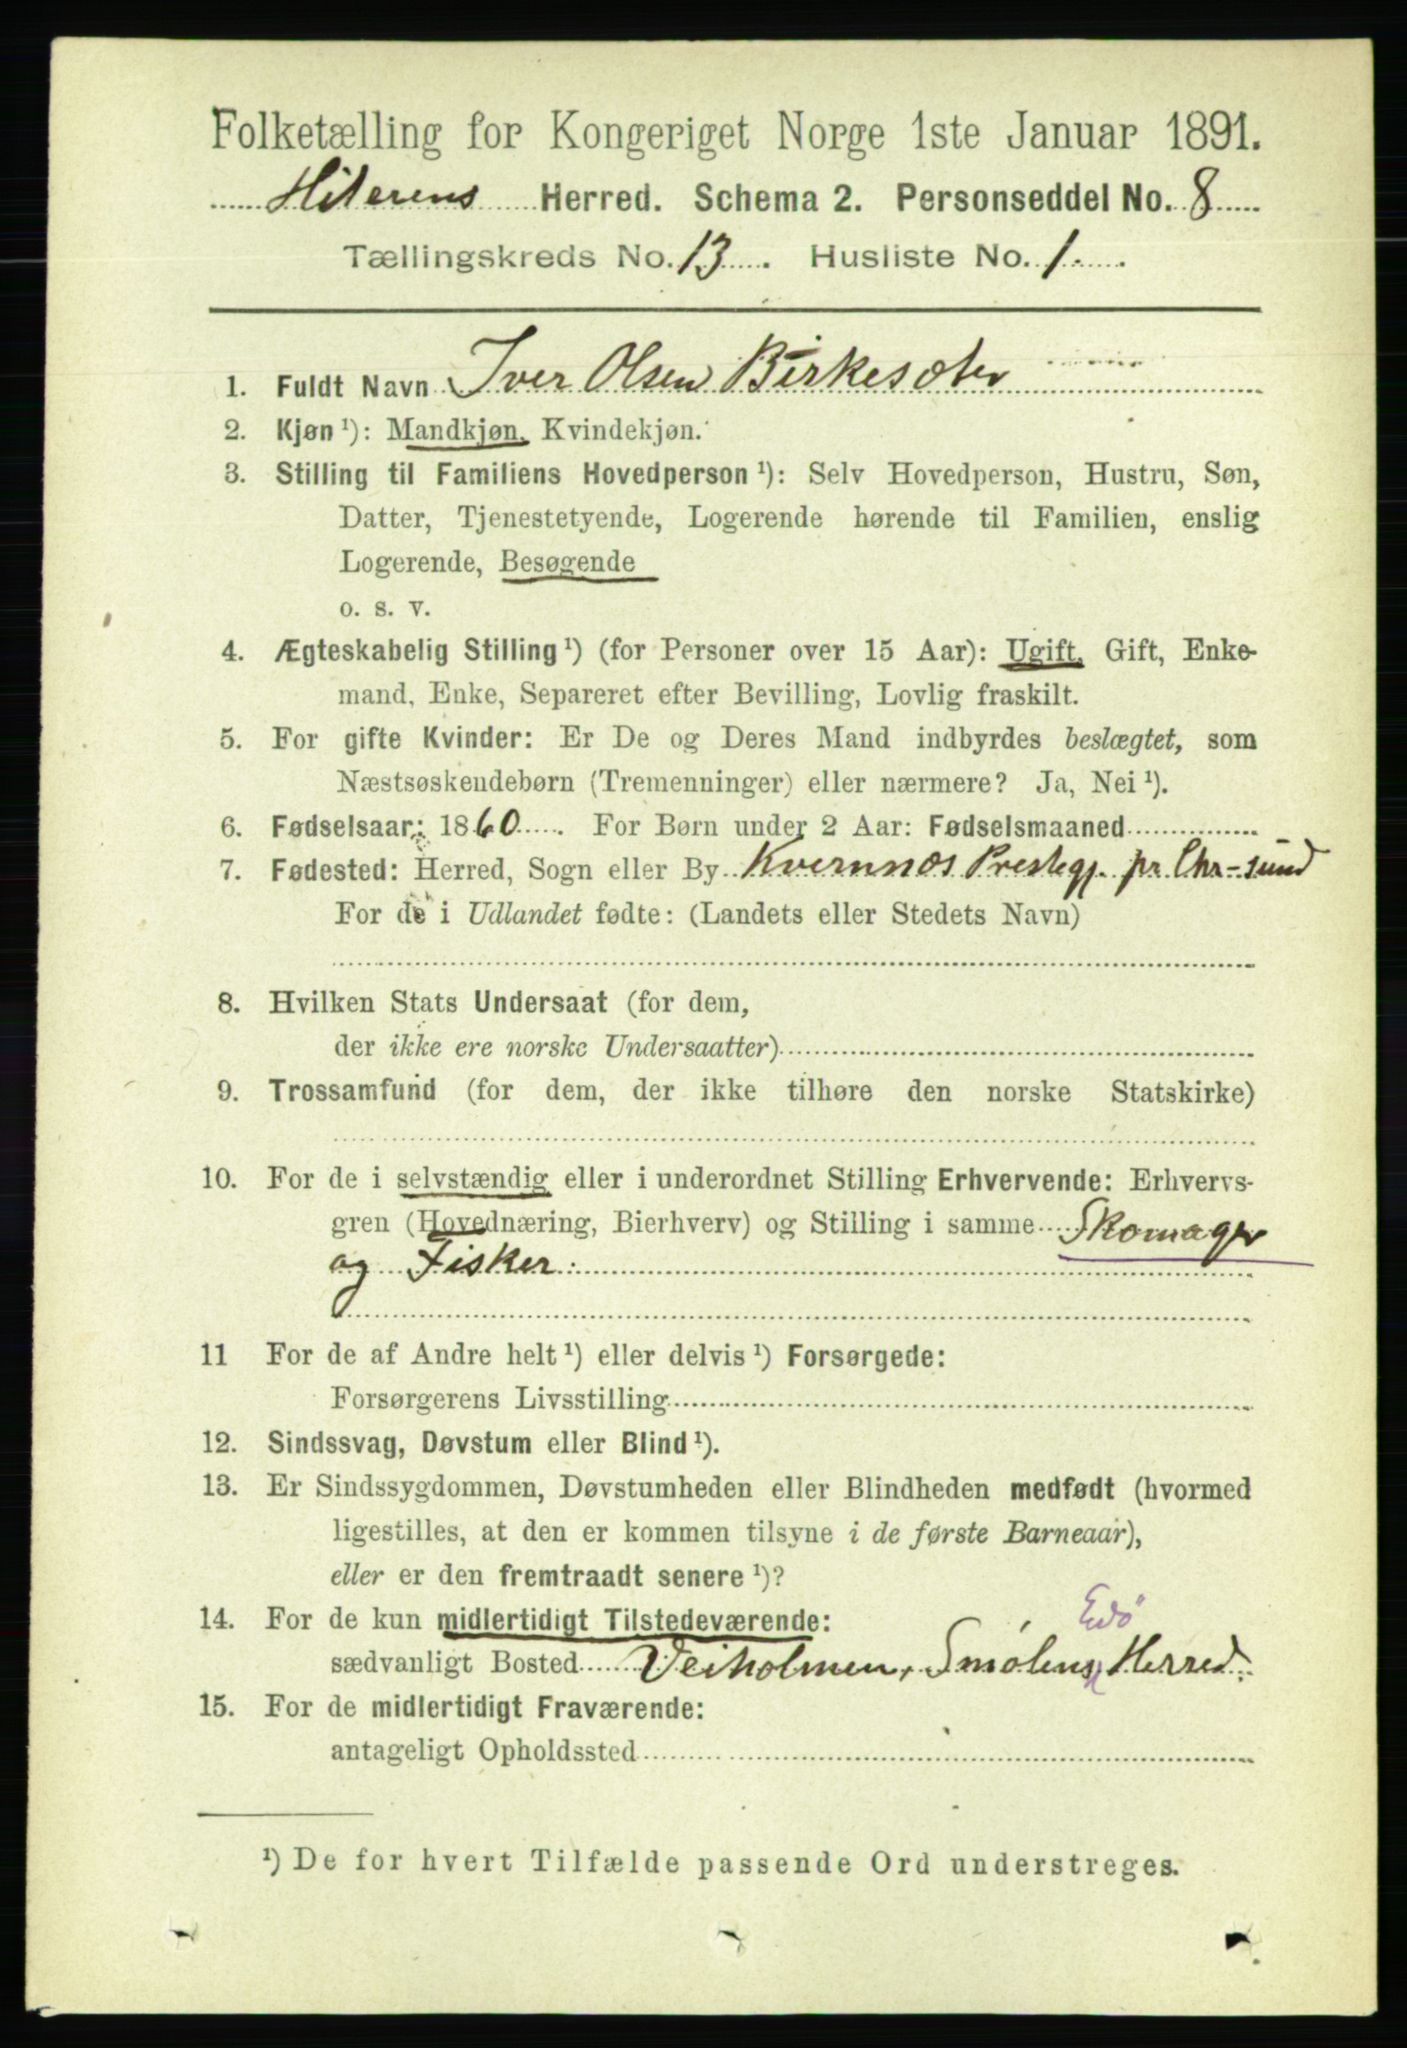 Folketælling for Kongeriget Norge 1ste Januar 1891.
Hiterens Herred. Schema 2. Personseddel No. 8
Tællingskreds No. 13. Husliste No. 1.
1. Fuldt Navn Iver Olsen Birkesæter
2. Kjøn ¹): Mandkjøn, Kvindekjøn.
3. Stilling til Familiens Hovedperson ¹): Selv Hovedperson, Hustru, Søn,
Datter, Tjenestetyende, Logerende hørende til Familien, enslig
Logerende, Besøgende
o. s. v.
4. Ægteskabelig Stilling ¹) (for Personer over 15 Aar): Ugift, Gift, Enke-
mand, Enke, Separeret efter Bevilling, Lovlig fraskilt.
5. For gifte Kvinder: Er De og Deres Mand indbyrdes beslægtet, som
Næstsøskendebørn (Tremenninger) eller nærmere? Ja, Nei ¹).
6. Fødselsaar: 1860. For Børn under 2 Aar: Fødselsmaaned
7. Fødested: Herred, Sogn eller By Kvernnæs Prestegj. pr. Chr-sund
For de i Udlandet fødte: (Landets eller Stedets Navn)
8. Hvilken Stats Undersaat (for dem,
der ikke ere norske Undersaatter)
9. Trossamfund (for dem, der ikke tilhøre den norske Statskirke)
10. For de i selvstændig eller i underordnet Stilling Erhvervende: Erhvervs-
gren (Hovednæring, Bierhverv) og Stilling i samme Skomager
og Fisker.
11 For de af Andre helt ¹) eller delvis ¹) Forsørgede:
Forsørgerens Livsstilling
12. Sindssvag, Døvstum eller Blind ¹).
13. Er Sindssygdommen, Døvstumheden eller Blindheden medfødt (hvormed
ligestilles, at den er kommen tilsyne i de første Barneaar),
eller er den fremtraadt senere ¹)?
14. For de kun midlertidigt Tilstedeværende:
Edö
sædvanligt Bosted Veiholmen, Smølens Herred.
15. For de midlertidigt Fraværende:
antageligt Opholdssted
¹) De for hvert Tilfælde passende Ord understreges.